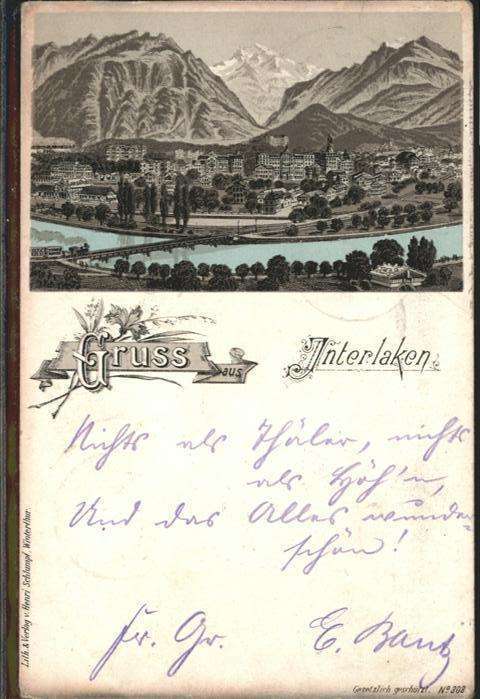 Gruss aus Interlaken.
Nichts als Thäler, nichts
als Höh'n,
Und das Alles wunder-
schön!
Fr. Gr. E. Bantz
Lith. & Verlag v. Henri Schlumpf, Winterthur.
Gesetzlich geschützt. No 308